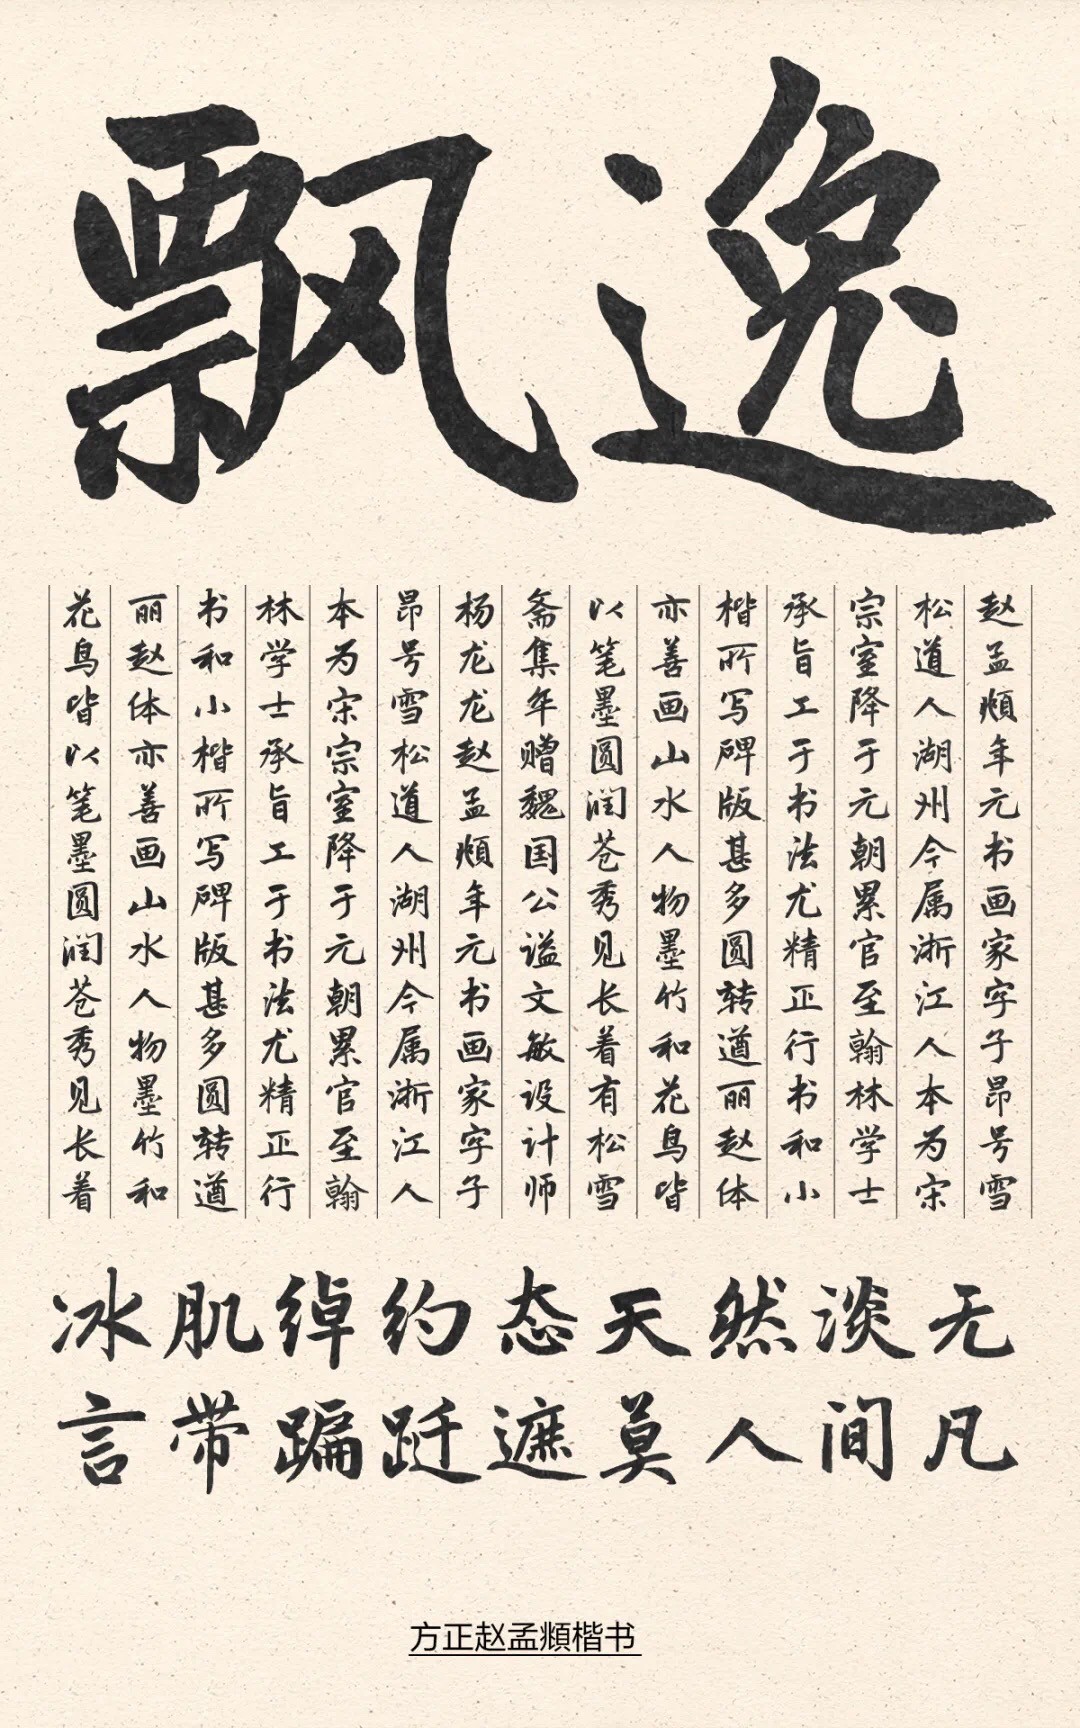 飘逸
赵孟頫年元书画家字子昂号雪
松道人湖州今属浙江人本为宋
宗室降于元朝累官至翰林学士
承旨工于书法尤精正行书和小
楷所写碑版甚多圆转遒丽赵体
亦善画山水人物墨竹和花鸟皆
以笔墨圆润苍秀见长着有松雪
斋集年赠魏国公谥文敏设计师
杨龙龙赵孟頫年元书画家字子
昂号雪松道人湖州今属浙江人
本为宋宗室降于元朝累官至翰
林学士承旨工于书法尤精正行
书和小楷所写碑版甚多圆转遒
丽赵体亦善画山水人物墨竹和
花鸟皆以笔墨圆润苍秀见长着
冰肌绰约态天然淡无
言带蹁跹遮莫人间凡
方正赵孟頫楷书